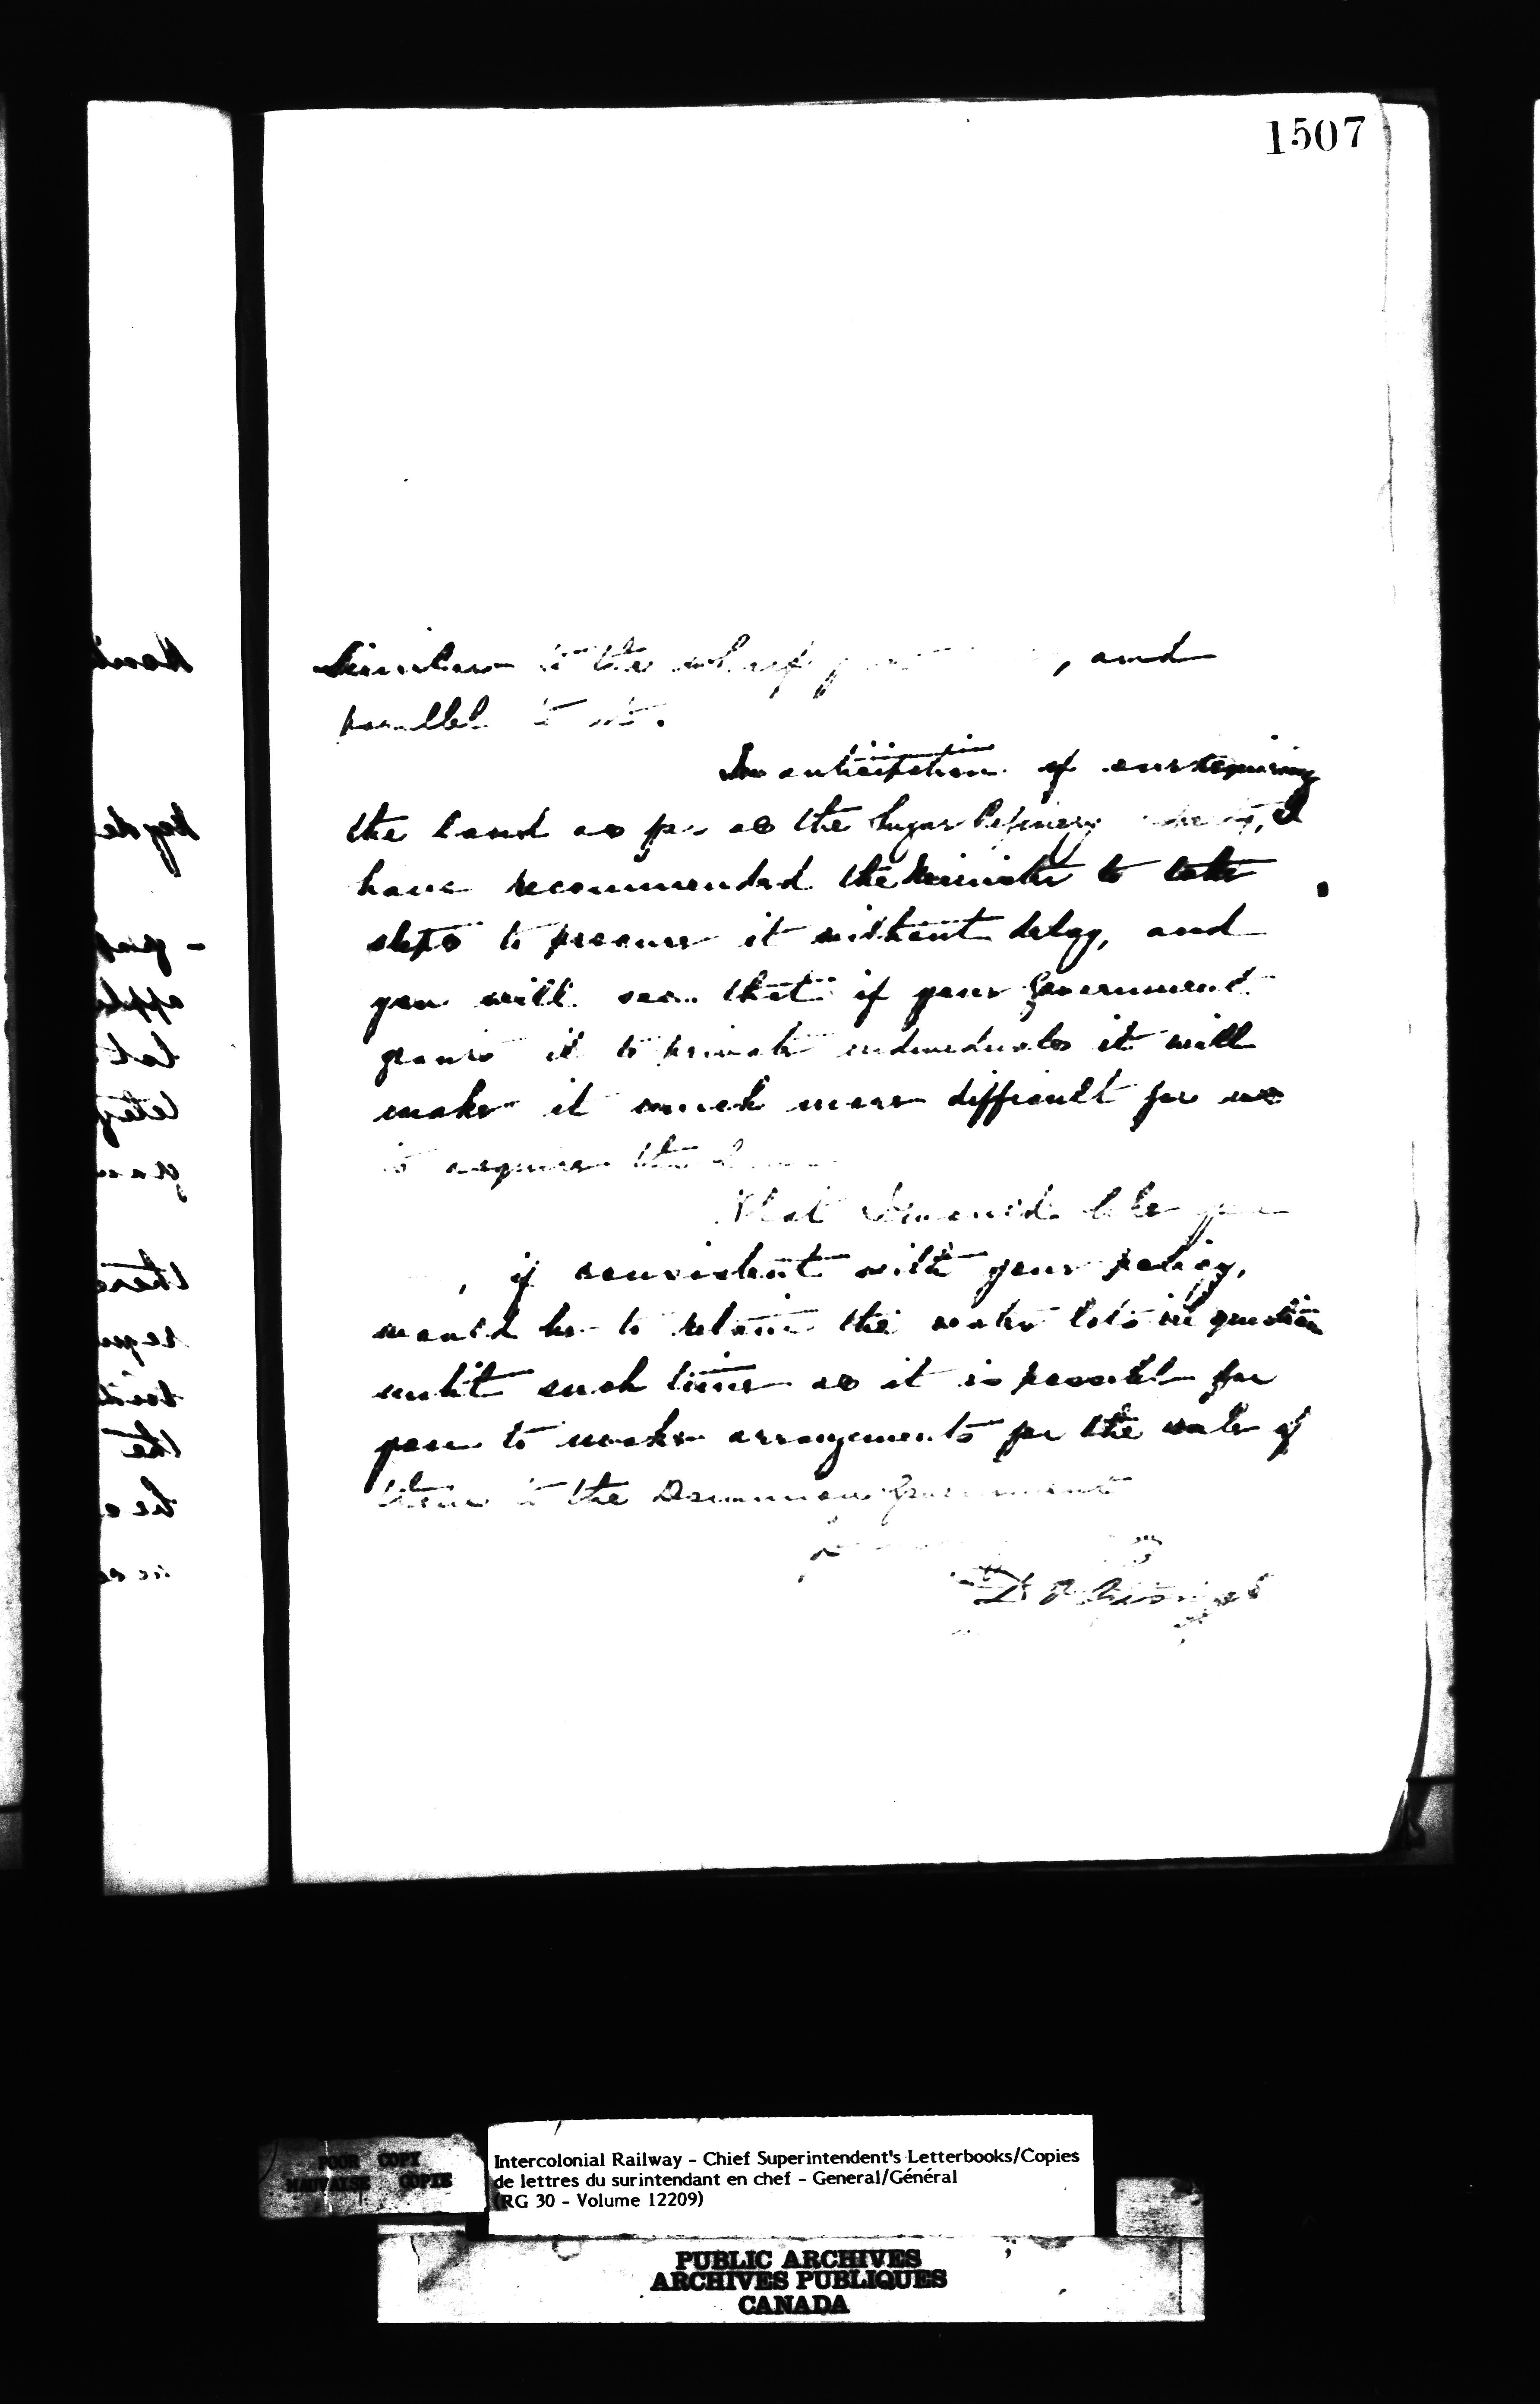 1507
Similar to the wharf , and
parallel to it.
In anticipation of our requiring
the land as far as the Sugar Refinery , I
have recommended the Minister to take
steps to procure it without delay, and
you will see that if your Government
grants it to private individuals it will
make it much more difficult for us
to acquire the
What I would like you
, if consistent with your policy,
would be to retain the water lots in question
until such time as it is possible for
you to make arrangements for the sale of
them to the Dominion Government
POOR COPY
MAUVAISE COPIE
Intercolonial Railway - Chief Superintendent's Letterbooks/Copies
de lettres du surintendant en chef - General/Général
(RG 30 - Volume 12209)
PUBLIC ARCHIVES
ARCHIVES PUBLIQUES
CANADA